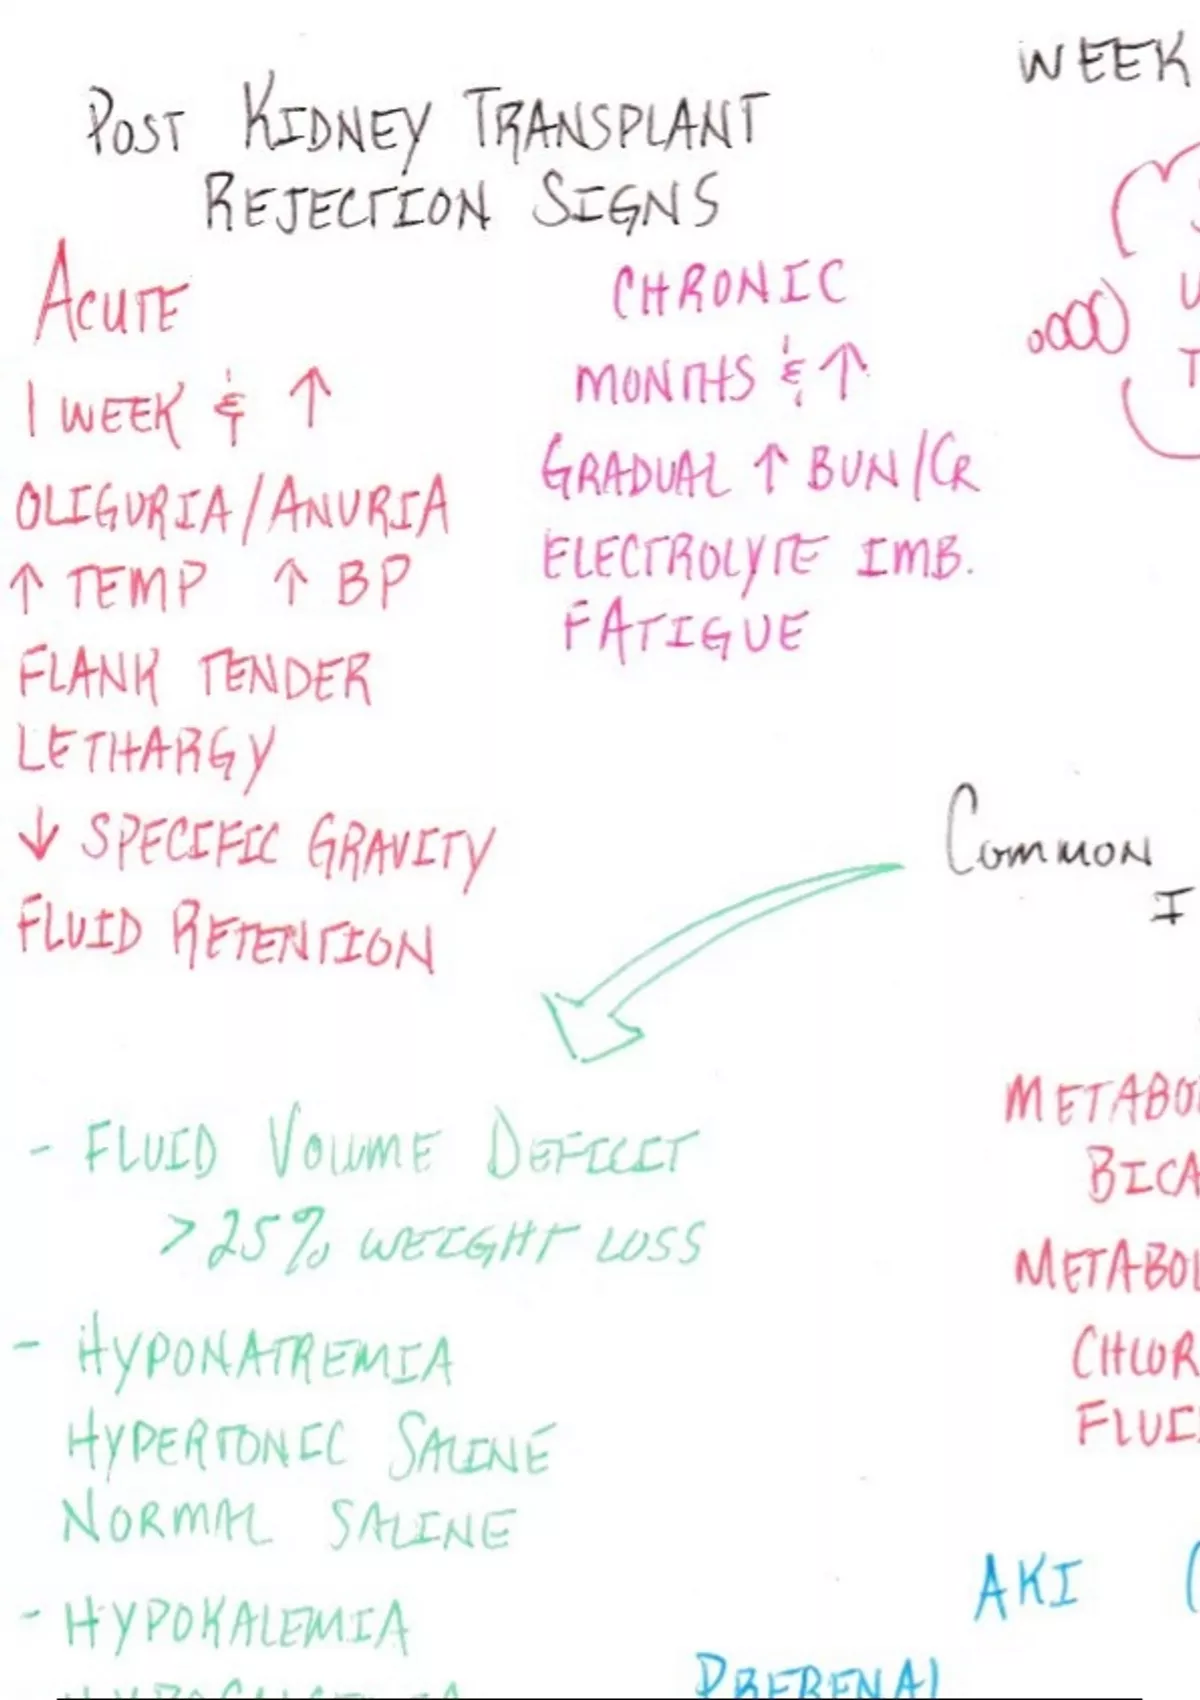 WEEK
POST KIDNEY TRANSPLANT
REJECTION SIGNS
ACUTE
1 WEEK & ↑
OLIGURIA/ANURIA
↑ TEMP ↑ BP
FLANK TENDER
LETHARGY
↓ SPECIFIC GRAVITY
FLUID RETENTION
CHRONIC
MONTHS & ↑
GRADUAL ↑ BUN/CR
ELECTROLYTE IMB.
FATIGUE
COMMON
I
- FLUID VOLUME DEFICIT
>25% WEIGHT LOSS
- HYPONATREMIA
HYPERTONIC SALINE
NORMAL SALINE
- HYPOKALEMIA
METABO
BICA
METABOL
CHLOR
FLUI
AKI (
PRERENAL